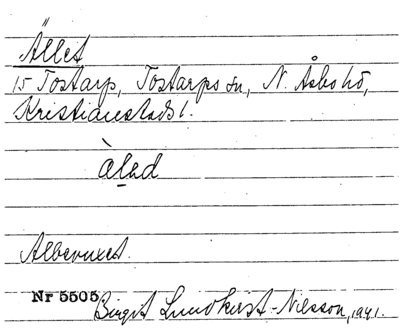 Ället
15 Tostarp, Tostarps sn, N. Åsbo hd,
Kristianstads l.
àləd
Albevuxet.
Nr 5505 Birgit Lundkvist-Nilsson, 1941.